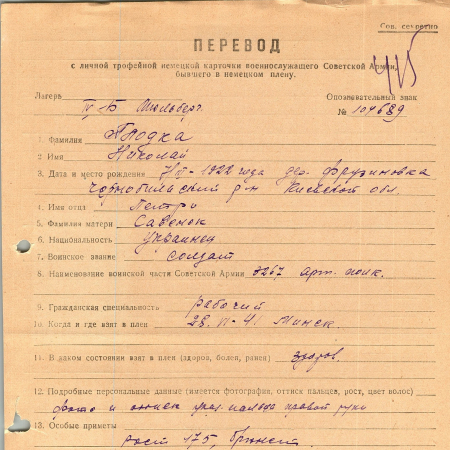 Сов. секретно
ПЕРЕВОД
с личной трофейной немецкой карточки военнослужащего Советской Армии,
бывшего в немецком плену.
Лагерь IV Б Мюльберг.
Опознавательный знак
№ 104689
1. Фамилия
2. Имя Николай
3. Дата и место рождения 1922 года дер.
р-н Киевской обл.
4. Имя отца
5. Фамилия матери Савенок
6. Национальность украинец
7. Воинское звание солдат
8. Наименование воинской части Советской Армии арт. полк.
9. Гражданская специальность рабочий
10. Когда и где взят в плен 28. VI-41 Минск.
11. В каком состоянии взят в плен (здоров, болен, ранен) здоров.
12. Подробные персональные данные (имеется фотография, оттиск пальцев, рост, цвет волос)
фото и оттиск пальца правой руки
13. Особые приметы
рост 175, брюнет